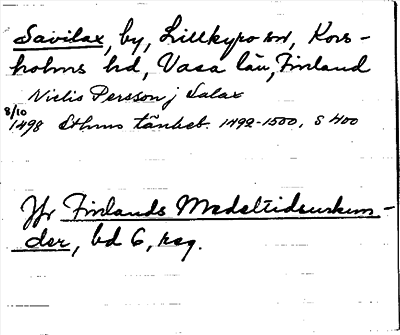 Savilax, by, Lillkyro sn, Kors-
holms hd, Vasa län, Finland
Nielis Persson j Salax
8/10
1498 Sthms tänkeb. 1492-1500, s 400
Jfr Finlands Medeltidsurkun-
der, bd 6, reg.